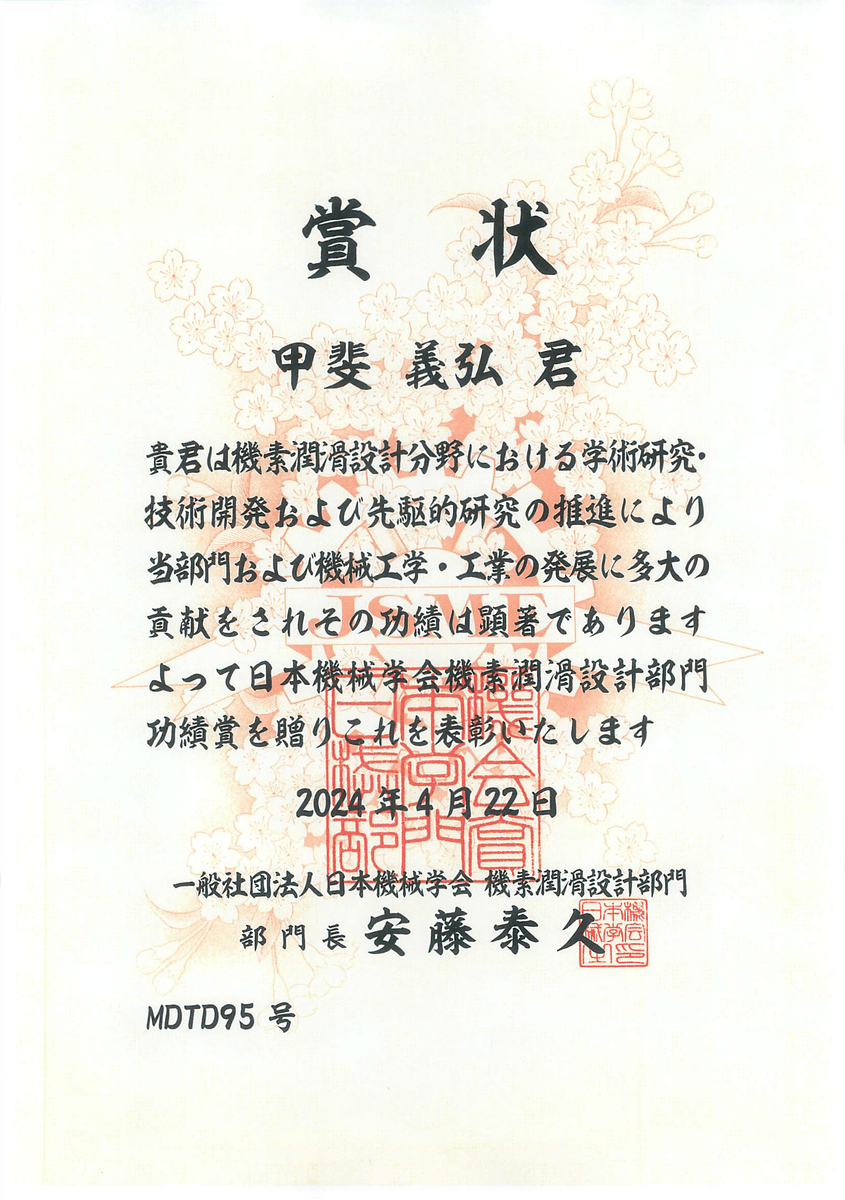 賞 状
甲斐 義弘 君
貴君は機素潤滑設計分野における学術研究・
技術開発および先駆的研究の推進により
当部門および機械工学・工業の発展に多大の
貢献をされその功績は顕著であります
よって日本機械学会機素潤滑設計部門
功績賞を贈りこれを表彰いたします
JSME
2024年4月22日
一般社団法人日本機械学会 機素潤滑設計部門
部門長 安藤泰久
MDTD95号